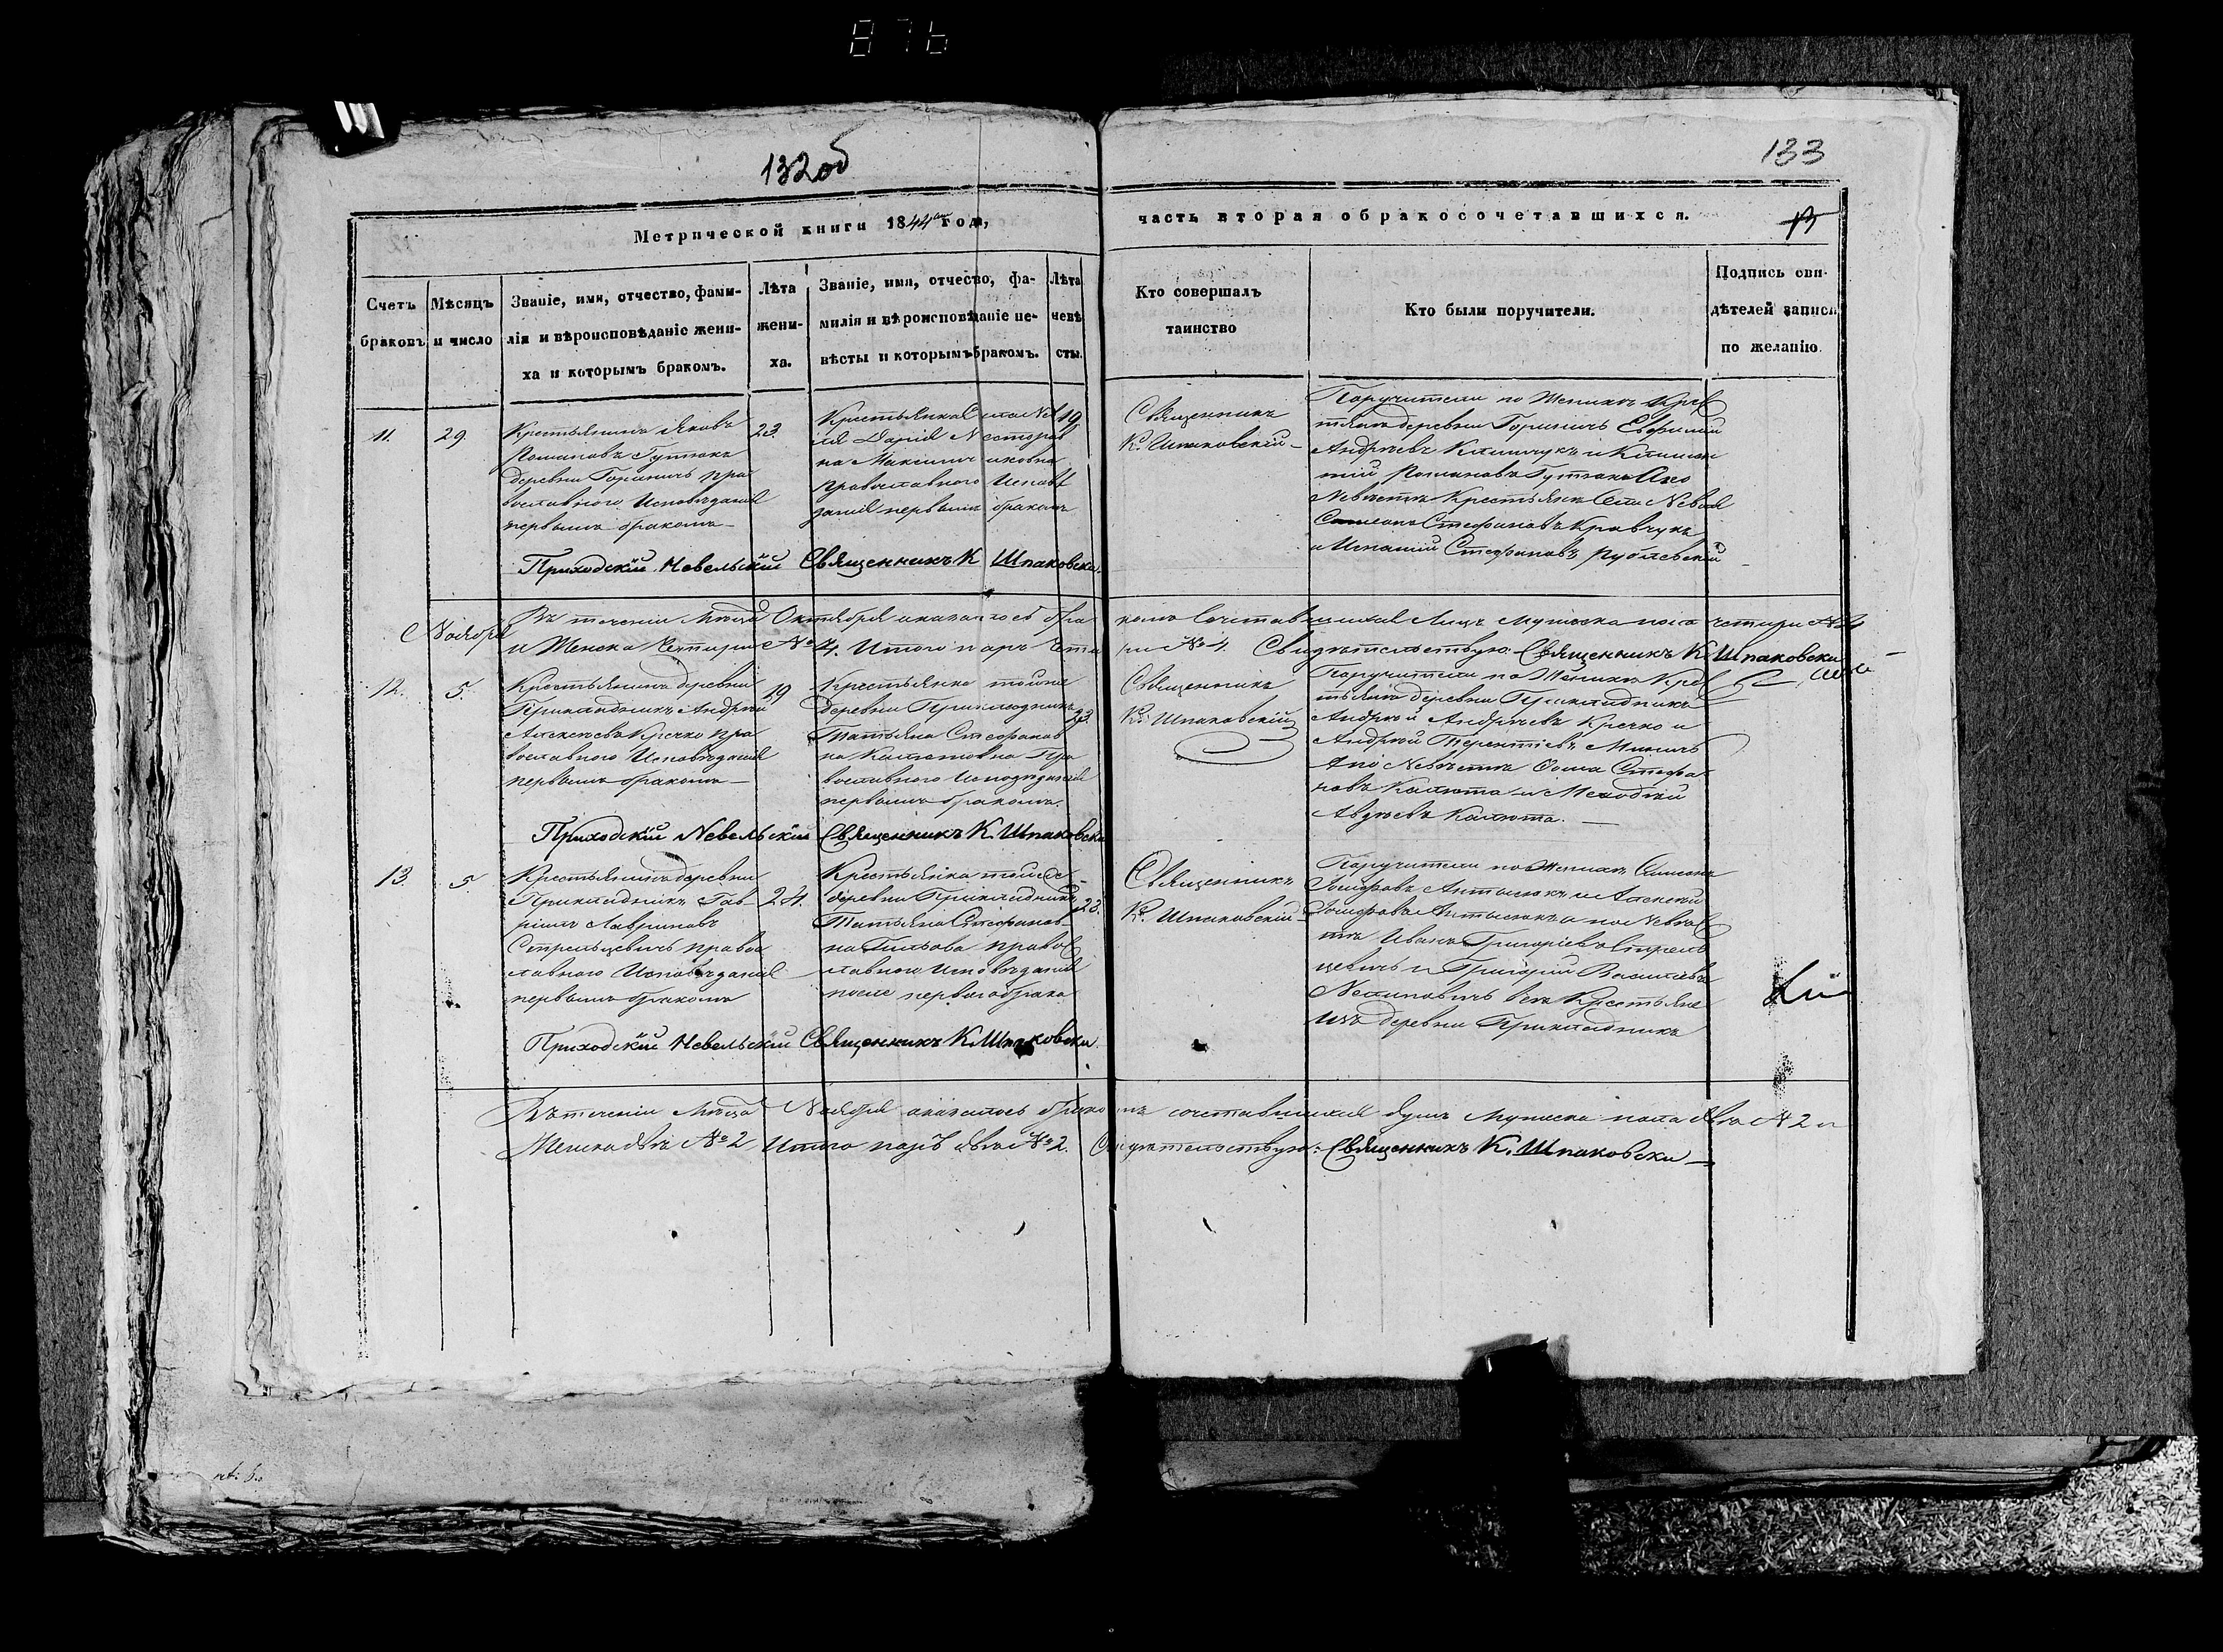 876
132об
133
Метрической книги 1844го года,
часть вторая о бракосочетавшихся.
13
Счетъ браковъ
Мѣсяцъ и число
Званіе, имя, отчество, фами-
лія и вѣроисповѣданіе жени-
ха и которымъ бракомъ.
Лѣта
жени-
ха.
Званіе, имя, отчество, фа-
милія и вѣроисповѣданіе не-
вѣсты и которымъ бракомъ.
Лѣта
невѣ
сты.
Кто совершалъ
таинство
Кто были поручители.
Подпись сви-
дѣтелей записи
по желанію.
11.
29.
Крестьянинъ Яковъ
Романовъ Гутшокъ
деревни Горничь пра
вославного Исповѣданія
первымъ бракомъ
23.
Крестьянка Села Nев
ля Дарія Nесторов
на
православного Исповѣ
данія первымъ бракомъ
19
Священникъ
К. Шпаковскій
Поручители по Жениху Крес
тьяне деревни Горничь Евфимій
Андреевъ Климчукъ и Климен
тій Романовъ Гутшокъ А по
Nевѣстѣ Крестьяне Села Nевля
Симеонъ Стефановъ Кравчукъ
и Игнатій Стефановъ Рублевскій
Приходскій Невельскій Священникъ К Шпаковски.
Nоября
Въ теченіи Мѣсяца Октября оказалось бра
комъ Сочетавшихся Лицъ Мужеска пола четыри №4
и Женска Четыри №4. Итого паръ Четы
ри №4. Свидѣтельствую: Священникъ К. Шпаковски
12.
5.
Крестьянинъ деревни
Прикладникъ Андрей
Алексѣевъ Кречко пра
вославного Исповѣданія
первымъ бракомъ
19
Крестьянка тойже
деревни Прикладникъ
Татьяна Стефанов
на Калютовна Пра
вославного Исповѣданія
первымъ бракомъ.
23.
Священникъ
К. Шпаковскій
Поручители по Жениху Крес
тьяне деревни Прикладникъ
Андрей Андреевъ Кречко и
Андрей Терентіевъ
А по Nевѣстѣ Фома Стефа
новъ Калюта и Мефодій
Авдѣевъ Калюта.
Приходскій Nевельскій Священникъ К. Шпаковски
13.
5.
Крестьянинъ деревни
Прикладникъ Гав
ріилъ Лавриновъ
Стрельцевичъ право
славного Исповѣданія
первымъ бракомъ
24.
Крестьянка тойже
деревни Прикладникъ
Татьяна Стефанов
на правос
лавного Исповѣданія
после первого брака
23.
Священникъ
К. Шпаковскій
Поручители по Жениху Симеонъ
Іосифовъ Антысюкъ и Алексѣй
Іосифовъ Антысюкъ а по Nевѣс
тѣ Иванъ Григоріевъ Стрель
цевичъ и Григорій Василіевъ
Nелиповичъ все Крестьяне
изъ деревни Прикладникъ
Приходскій Невельскій Священникъ К. Шпаковски.
Въ теченіи Мѣсяца Nоября оказалось бракомъ сочетавшихся душъ Мужеска пола два №2 и
Женска двѣ №2 Итого паръ двѣ №2. Свидѣтельствую: Священникъ К. Шпаковски